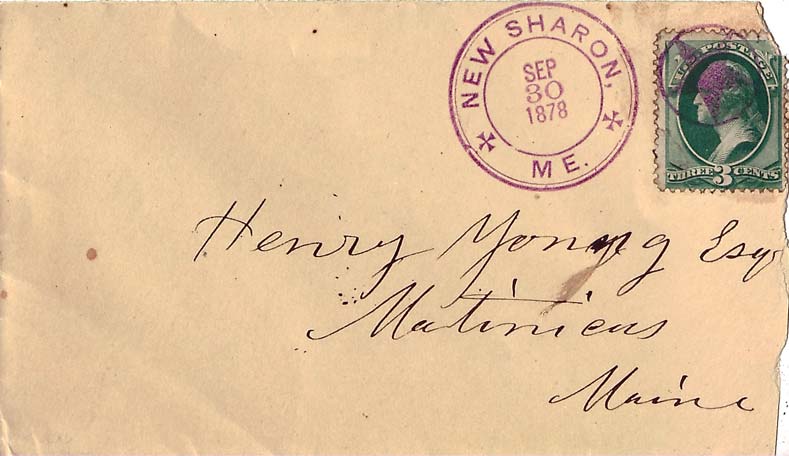 NEW SHARON,
SEP
30
1878
ME.
U.S. POSTAGE
THREE 3 CENTS
Henry Young Esq
Matinicus
Maine